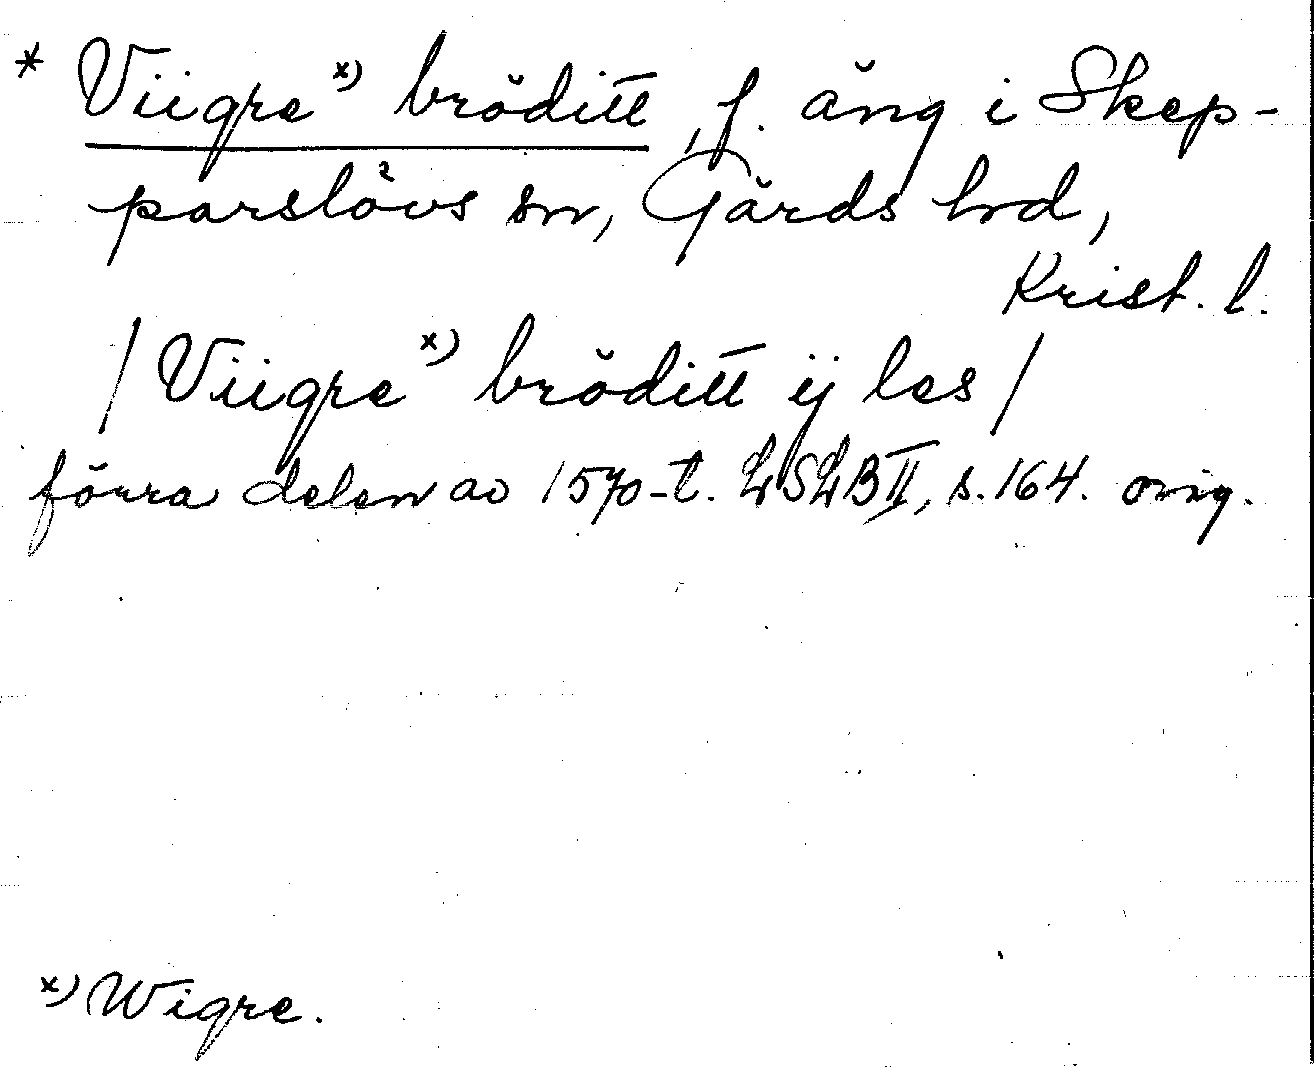 * Viigre x) bröditt, f. äng i Skep-
parslövs sn, Gärds hrd,
Krist. l.
/ Viigre x) bröditt ij les /
förra delen av 1570-t. LSLB II, s. 164. orig.
x) Wigre.